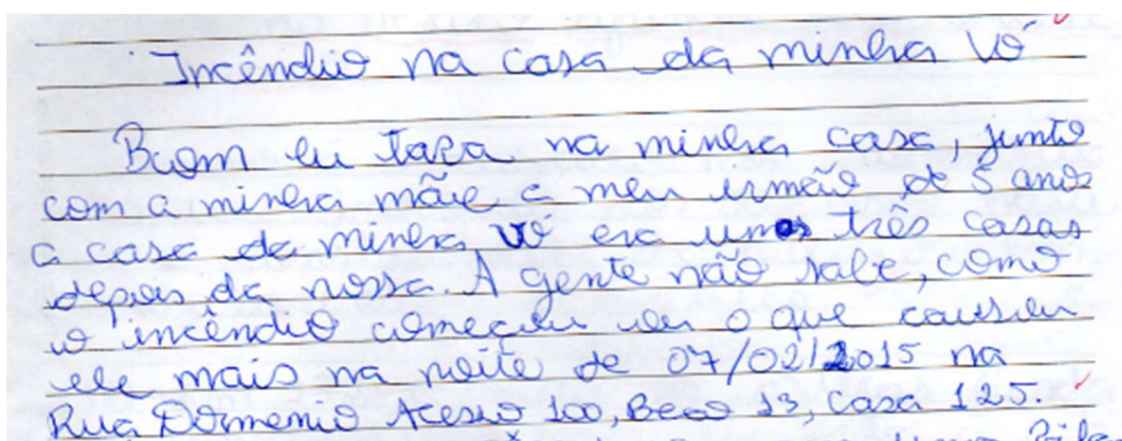 Incêndio na casa da minha Vó
Buom eu tava na minha casa, junto
com a minha mãe e meu irmão de 5 anos
a casa da minha vó era umas três casas
depois da nossa. A gente não sabe, como
o incêndio começou ou o que causou
ele mais na noite de 07/02/2015 na
Rua Domenio 100, Beco 13, casa 125.